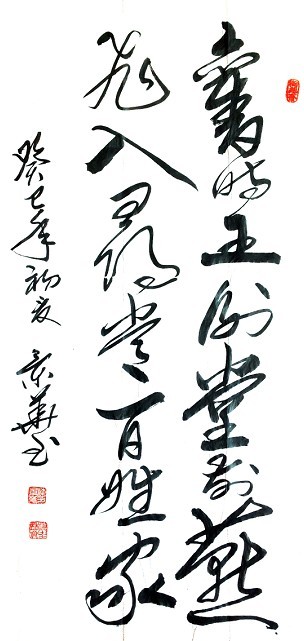 舊時王謝堂前燕
飛入尋常百姓家
癸巳年初夏 景華书